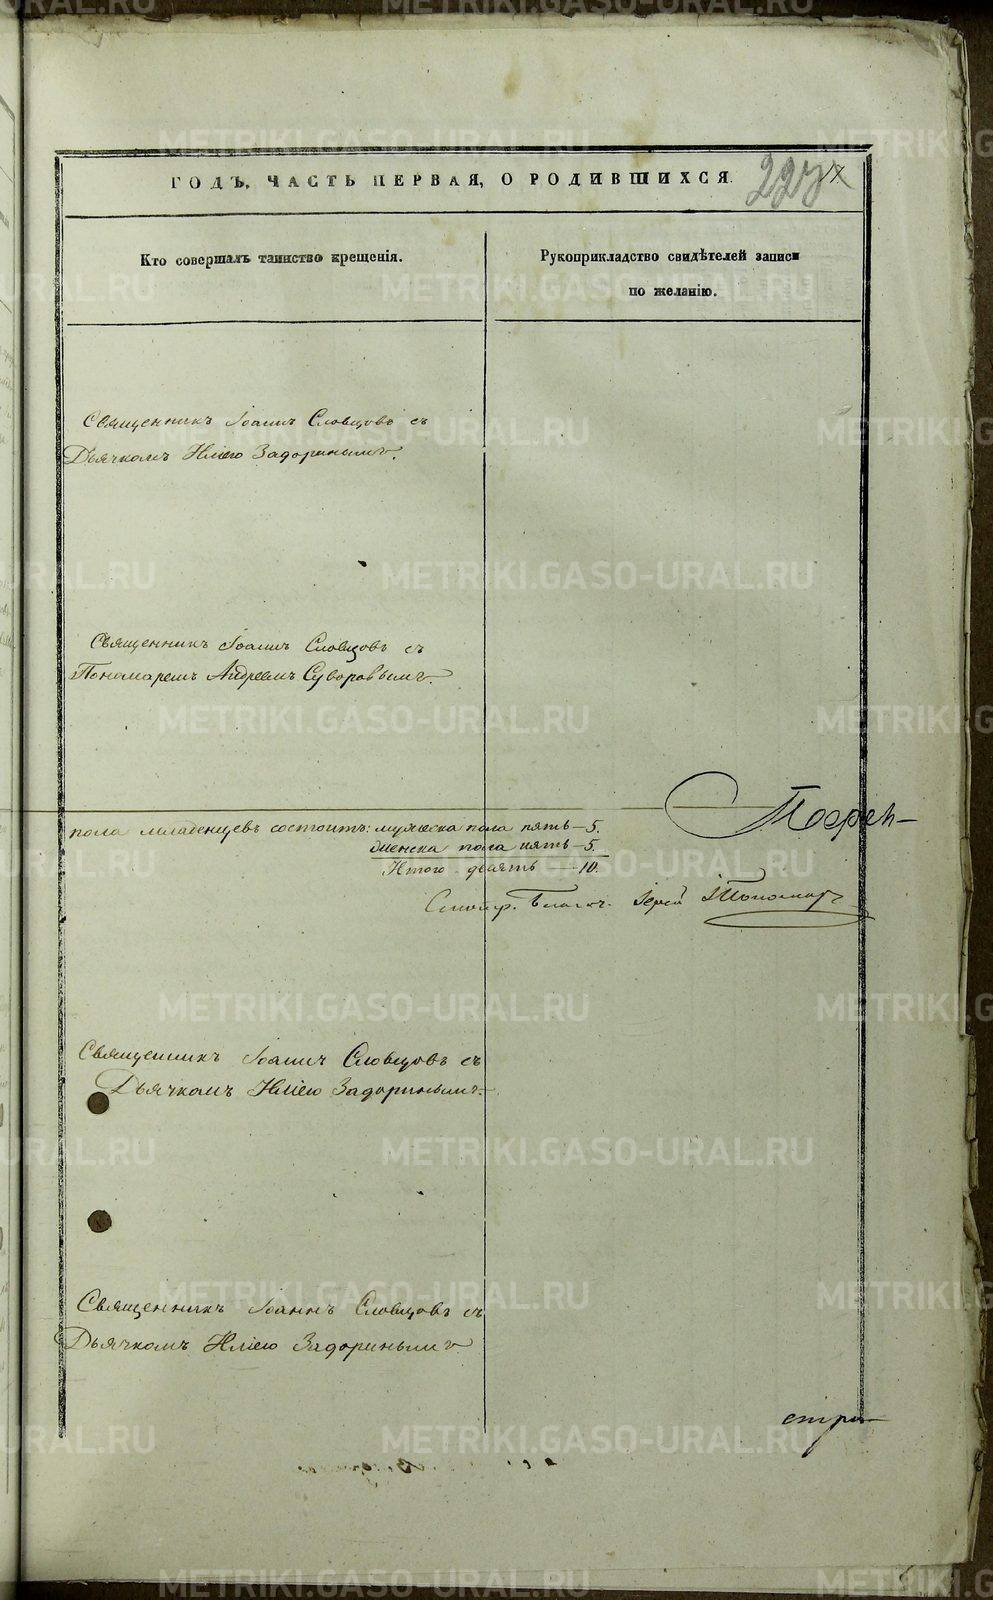 ГОДЪ, ЧАСТЬ ПЕРВАЯ, О РОДИВШИХСЯ.
Кто совершалъ таинство крещенія.
Рукоприкладство свидѣтелей записи
по желанію.
Священникъ Іоаннъ Словцовъ съ
Дьячкомъ Иліею Задоринымъ.
Священникъ Іоаннъ Словцовъ съ
Пономаремъ Андреемъ Суворовымъ.
пола младенцевъ состоитъ: мужеска пола пять – 5.
женска пола пять – 5.
Итого десять – 10.
Священникъ Іоаннъ Словцовъ съ
Дьячкомъ Иліею Задоринымъ.
Священникъ Іоаннъ Словцовъ съ
Дьячкомъ Иліею Задоринымъ
METRIKI.GASO-URAL.RU